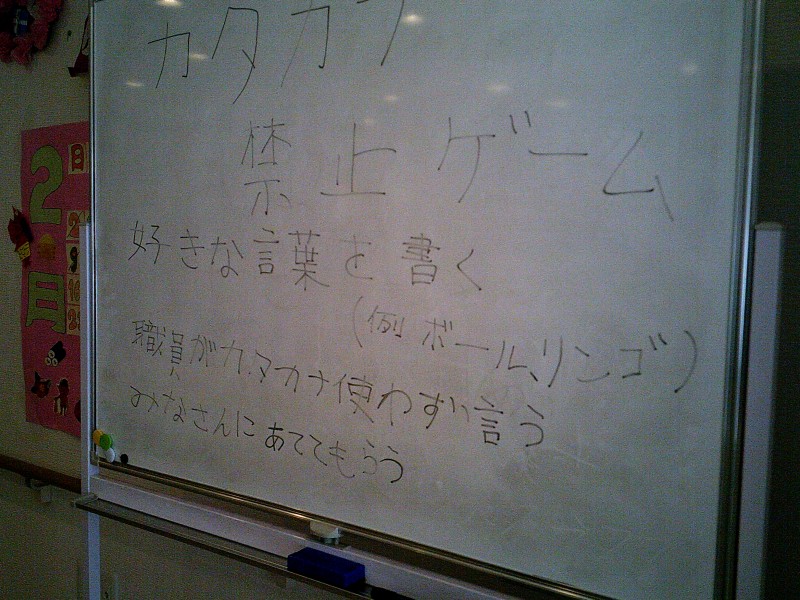 カタカナ
禁止ゲーム
好きな言葉を書く
(例 ボール、リンゴ)
職員がカタカナ使わずに言う
みなさんにあててもらう
2月